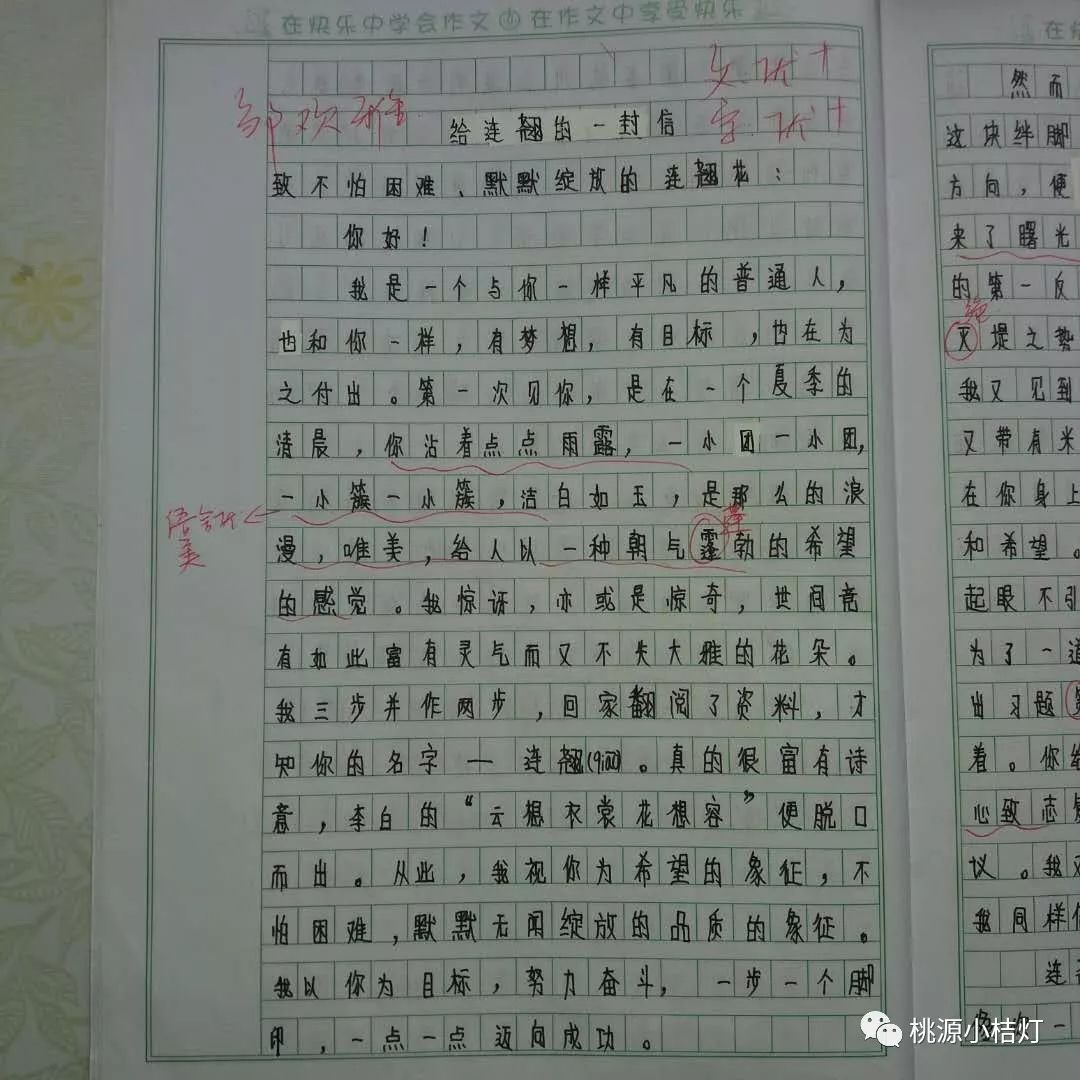 在快乐中学会作文 在作文中享受快乐
文优+
邹欢雅
给连翘的一封信
字优+
致不怕困难、默默绽放的连翘花：
你好！
我是一个与你一样平凡的普通人，
也和你一样，有梦想，有目标，也在为
之付出。第一次见你，是在一个夏季的
清晨，你沾着点点雨露，一小团一小团，
一小簇一小簇，洁白如玉，是那么的浪
语言优美
漫，唯美，给人以一种朝气蓬勃的希望
的感觉。我惊讶，亦或是惊奇，世间竟
有如此富有灵气而又不失大雅的花朵。
我三步并作两步，回家翻阅了资料，才
知你的名字——连翘(qiào)。真的很富有诗
意，李白的“云想衣裳花想容”便脱口
而出。从此，我视你为希望的象征，不
怕困难，默默无闻绽放的品质的象征。
我以你为目标，努力奋斗，一步一个脚
印，一点一点迈向成功。
在
然而
这块绊脚
方向，便
来了曙光
的第一反
灭堤之势
我又见到
又带有米
在你身上
和希望。
起眼不引
为了一道
出习题
着。你给
心致志
议。我又
我同样
连
像你一
桃源小桔灯